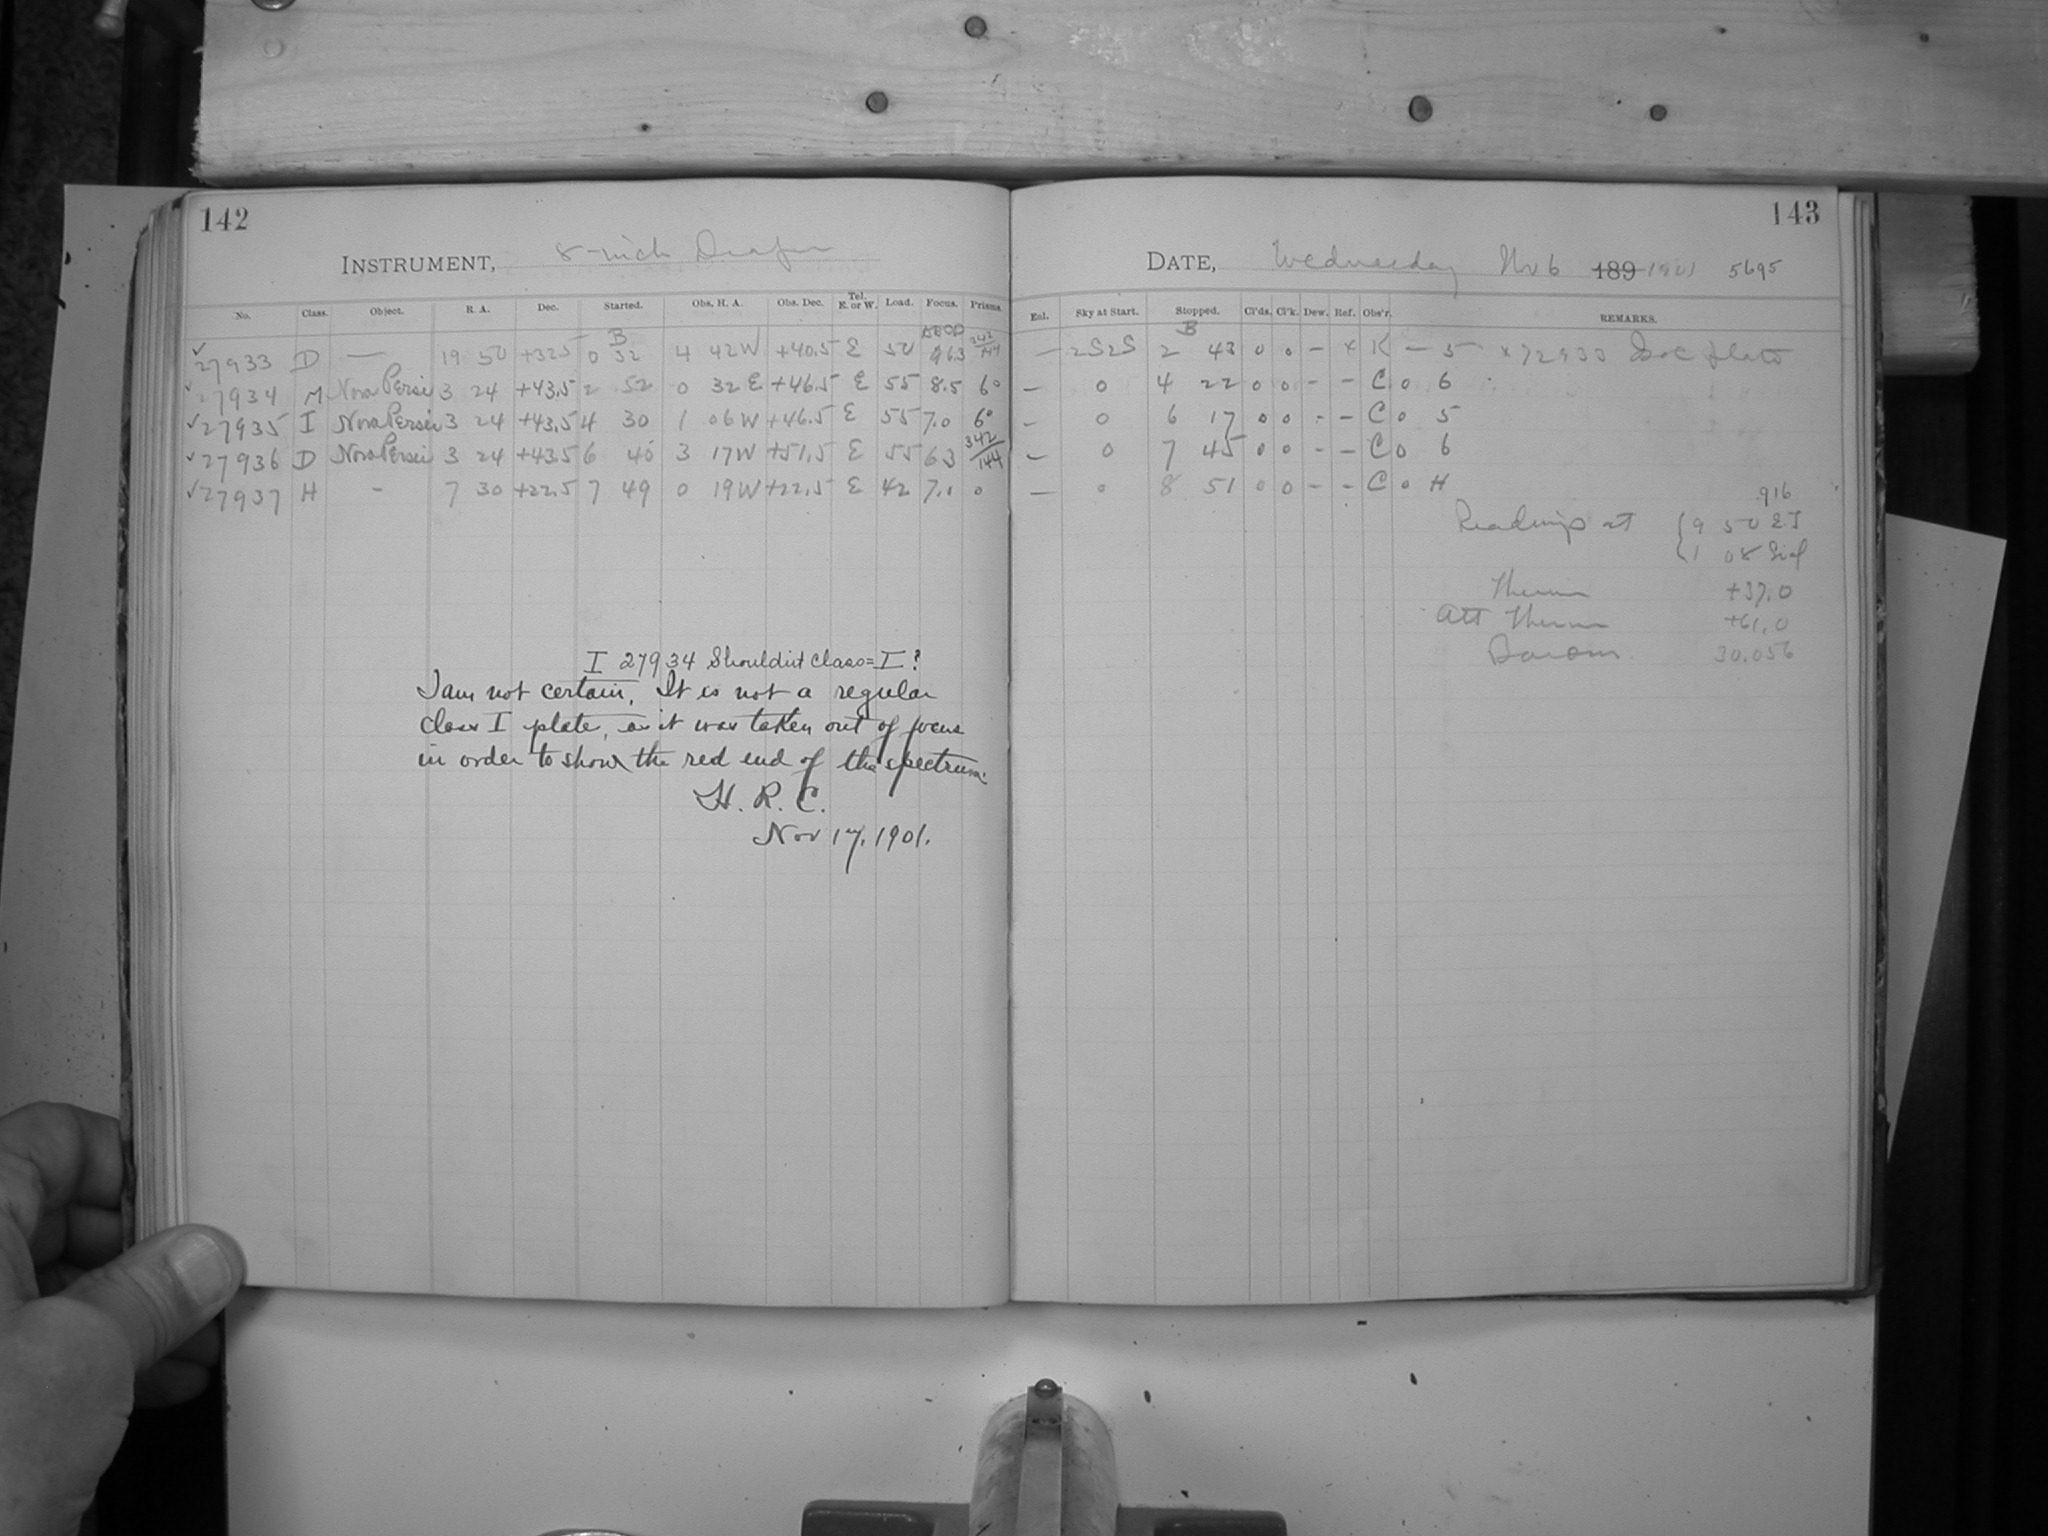 142
INSTRUMENT, 8-inch Draper
No. Class. Object. R. A. Dec. Started. Obs. H. A. Obs. Dec. Tel. E. or W. Load. Focus. Prisms.
B
27933 D — 19 50 +32.5 0 32 4 42 W +40.5 E 50 6.3 342/144
27934 M Nova Persei 3 24 +43.5 2 52 0 32 E +46.5 E 55 8.5 6°
27935 I Nova Persei 3 24 +43.5 4 30 1 06 W +46.5 E 55 7.0 6°
27936 D Nova Persei 3 24 +43.5 6 40 3 17 W +51.5 E 55 6.3 342/144
27937 H - 7 30 +22.5 7 49 0 19 W +22.5 E 42 7.1 0
I 27934 Shouldn't class = I?
I am not certain. It is not a regular
class I plate, as it was taken out of focus
in order to show the red end of the spectrum.
H. R. C.
Nov 17, 1901.
143
DATE, Wednesday Nov 6 189 1901 5695
Enl. Sky at Start. Stopped. Cl'ds. Cl'k. Dew. Ref. Obs'r. REMARKS.
B
— 2S2S 2 43 0 0 - x K - 5 x 72933 Iso C plate
— 0 4 22 0 0 - - C 0 6
- 0 6 17 0 0 - - C 0 5
— 0 7 45 0 0 - - C 0 6
— 0 8 51 0 0 - - C 0 H
916
Readings at { 9 50 E T
1 08 Sid
Therm +37.0
Att Therm +61.0
Barom. 30.056